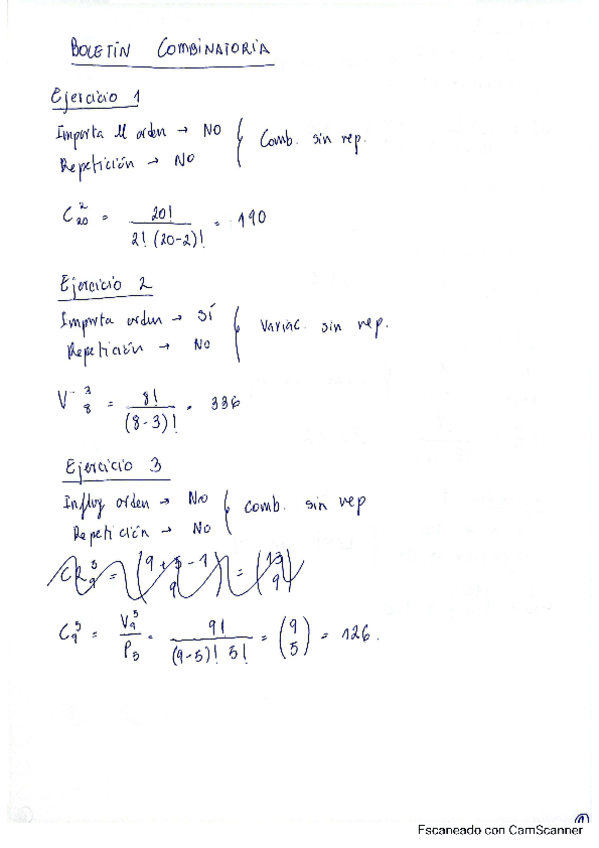 BOLETÍN COMBINATORIA
Ejercicio 1
Importa el orden → NO
Repetición → NO
Comb. sin rep.
C₂₀² = 20! / 2! (20-2)! = 190
Ejercicio 2
Importa orden → SÍ
Repetición → NO
Variac. sin rep.
V₈³ = 8! / (8-3)! = 336
Ejercicio 3
Influy orden → No
Repetición → No
Comb. sin rep
C₉⁵ = V₉⁵ / P₅ = 9! / (9-5)! 5! = (9 5) = 126.
Escaneado con CamScanner